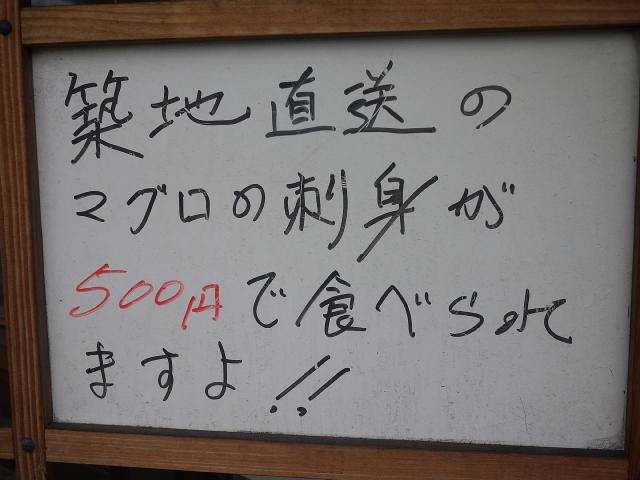 築地直送の
マグロの刺身が
500円で食べられ
ますよ!!